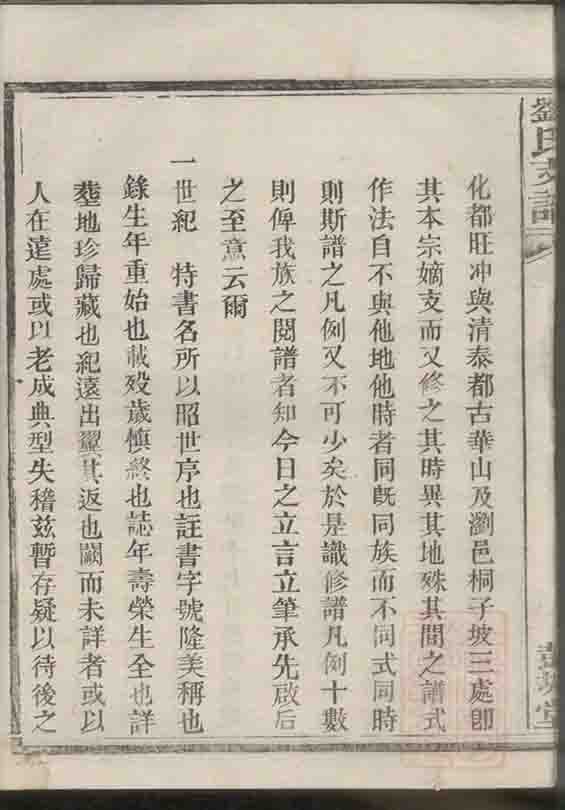 劉氏支譜
化都旺冲與清泰都古華山及瀏邑桐子坡三處卽
其本宗嫡支而又修之其時異其地殊其間之譜式
作法自不與他地他時者同旣同族而不同式同時
則斯譜之凡例又不可少矣於是識修譜凡例十數
則俾我族之閱譜者知今日之立言立筆承先啟后
之至意云爾
一世紀 特書名所以昭世序也註書字號隆美稱也
錄生年重始也載歿歲慎終也誌年壽榮生全也詳
塟地珍歸藏也紀遠出冀其返也闕而未詳者或以
人在遠處或以老成典型失稽茲暫存疑以待後之